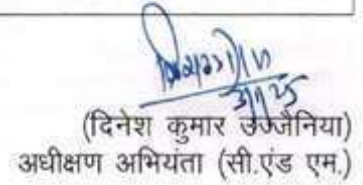 (दिनेश कुमार उज्जैनिया)
अधीक्षण अभियंता (सी.एंड एम.)